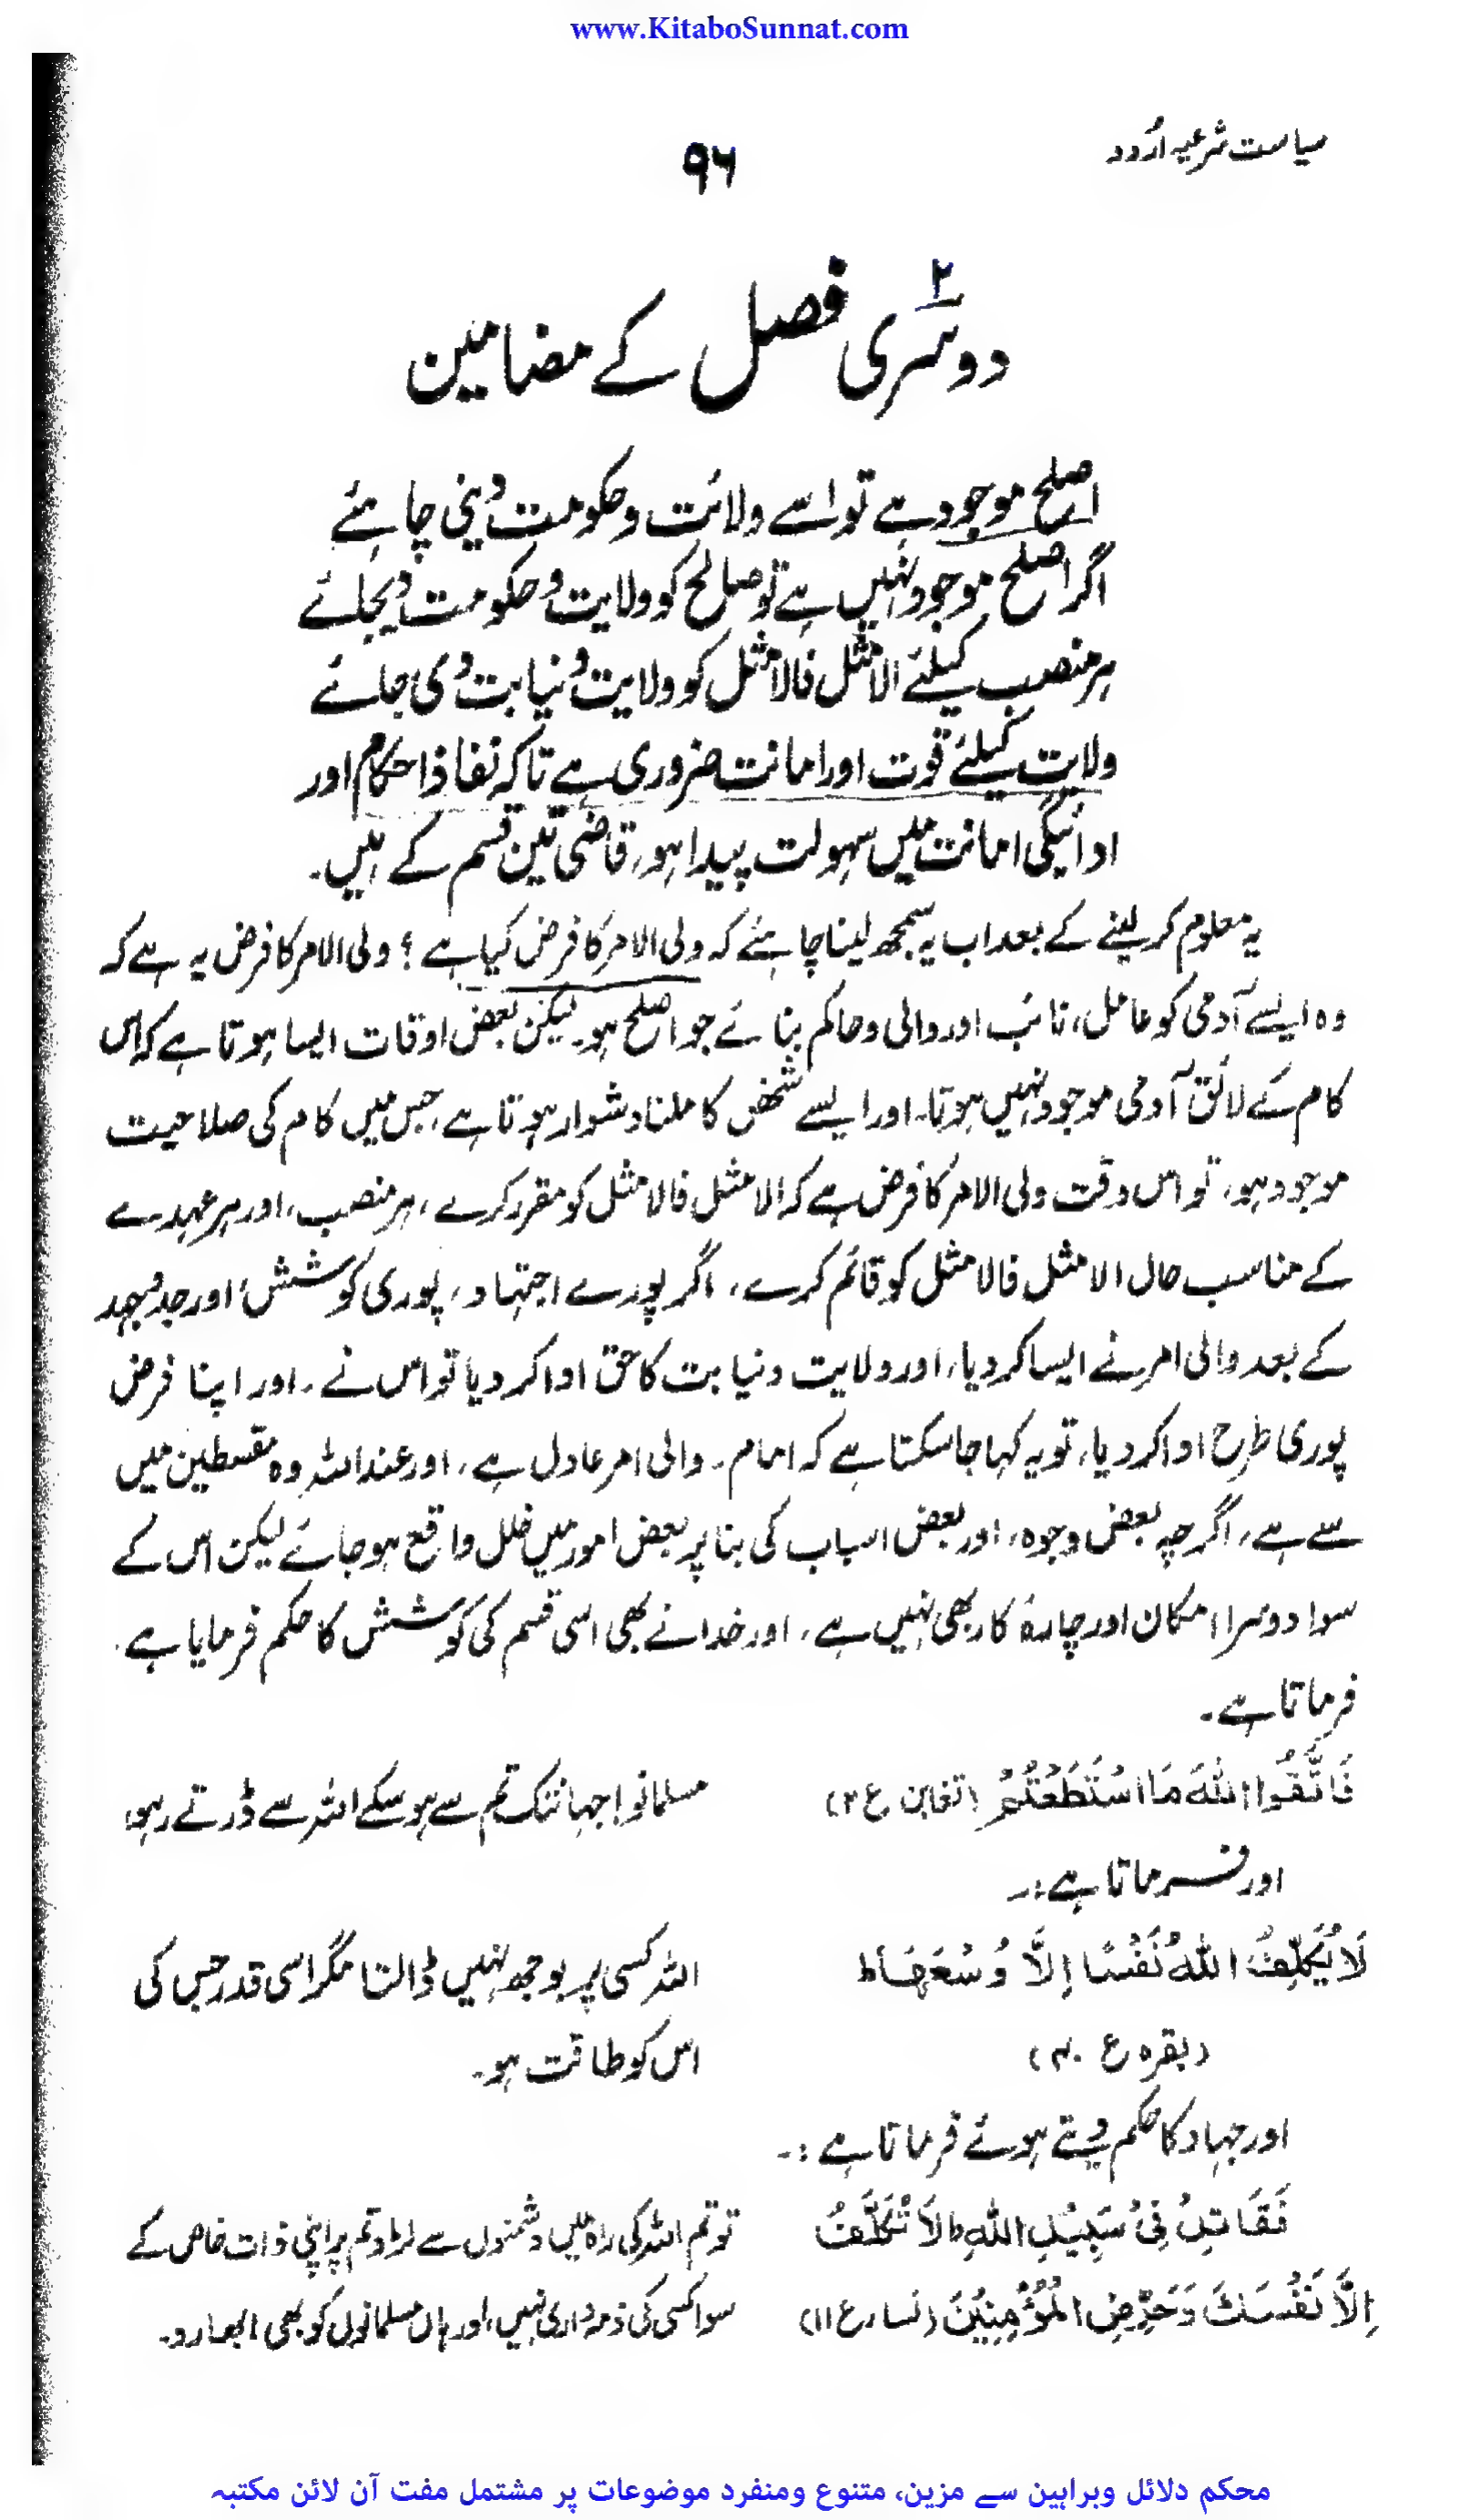 www.KitaboSunnat.com
سیاست شرعیہ اُردو
۹۶
۲
دوسری فصل کے مضامین
اصلح موجود ہے تو اسے ولائت و حکومت دینی چاہئے
اگر اصلح موجود نہیں ہے تو صالح کو ولایت و حکومت دیجائے
ہر منصب کیلئے الامثل فالامثل کو ولایت و نیابت دی جائے
ولایت کیلئے قوت اور امانت ضروری ہے تاکہ نفاذ احکام اور
ادائیگی امانت میں سہولت پیدا ہو، قاضی تین قسم کے ہیں۔
یہ معلوم کر لینے کے بعد اب یہ سمجھ لینا چاہئے کہ ولی الامر کا فرض کیا ہے ؟ ولی الامر کا فرض یہ ہے کہ
وہ ایسے آدمی کو عامل، نائب اور والی و حاکم بنائے جو اصلح ہو۔ لیکن بعض اوقات ایسا ہوتا ہے کہ اس
کام کے لائق آدمی موجود نہیں ہوتا۔ اور ایسے شخص کا ملنا دشوار ہوتا ہے، جس میں کام کی صلاحیت
موجود ہو، تو اس وقت ولی الامر کا فرض ہے کہ الامثل فالامثل کو مقرر کرے، ہر منصب، اور ہر عہدے
کے مناسب حال الامثل فالامثل کو قائم کرے، اگر پورے اجتہاد، پوری کوشش، اور جد و جہد
کے بعد والی امر نے ایسا کر دیا، اور ولایت و نیابت کا حق ادا کر دیا تو اس نے ۔ اور اپنا فرض
پوری طرح ادا کر دیا، تو یہ کہا جا سکتا ہے کہ امام ۔ والی امر عادل ہے، اور عند اللہ وہ مقسطین میں
سے ہے، اگرچہ بعض وجوہ، اور بعض اسباب کی بنا پر بعض امور میں خلل واقع ہو جائے لیکن اس کے
سوا دوسرا امکان اور چارۂ کار بھی نہیں ہے، اور خدا نے بھی اسی قسم کی کوشش کا حکم فرمایا ہے۔
فرماتا ہے۔
فَاتَّقُوا اللّٰهَ مَا اسْتَطَعْتُمْ (تغابن ع ۲) مسلمانو! جہانتک تم سے ہو سکے اللہ سے ڈرتے رہو۔
اور فرماتا ہے:۔
لَا یُکَلِّفُ اللّٰهُ نَفْسًا اِلَّا وُسْعَهَا ط اللہ کسی پر بوجھ نہیں ڈالتا مگر اسی قدر جس کی
(بقرہ ع ۴۰) اس کو طاقت ہو۔
اور جہاد کا حکم دیتے ہوئے فرماتا ہے:۔
فَقَاتِلْ فِیْ سَبِیْلِ اللّٰهِ لَا تُکَلَّفُ تو تم اللہ کی راہ میں دشمنوں سے لڑو تم پر اپنی ذات خاص کے
اِلَّا نَفْسَكَ وَحَرِّضِ الْمُؤْمِنِیْنَ (نساء ع ۱۱) سوا کسی کی ذمہ داری نہیں، اور ہاں مسلمانوں کو بھی ابھارو۔
محکم دلائل وبراہین سے مزین، متنوع ومنفرد موضوعات پر مشتمل مفت آن لائن مکتبہ